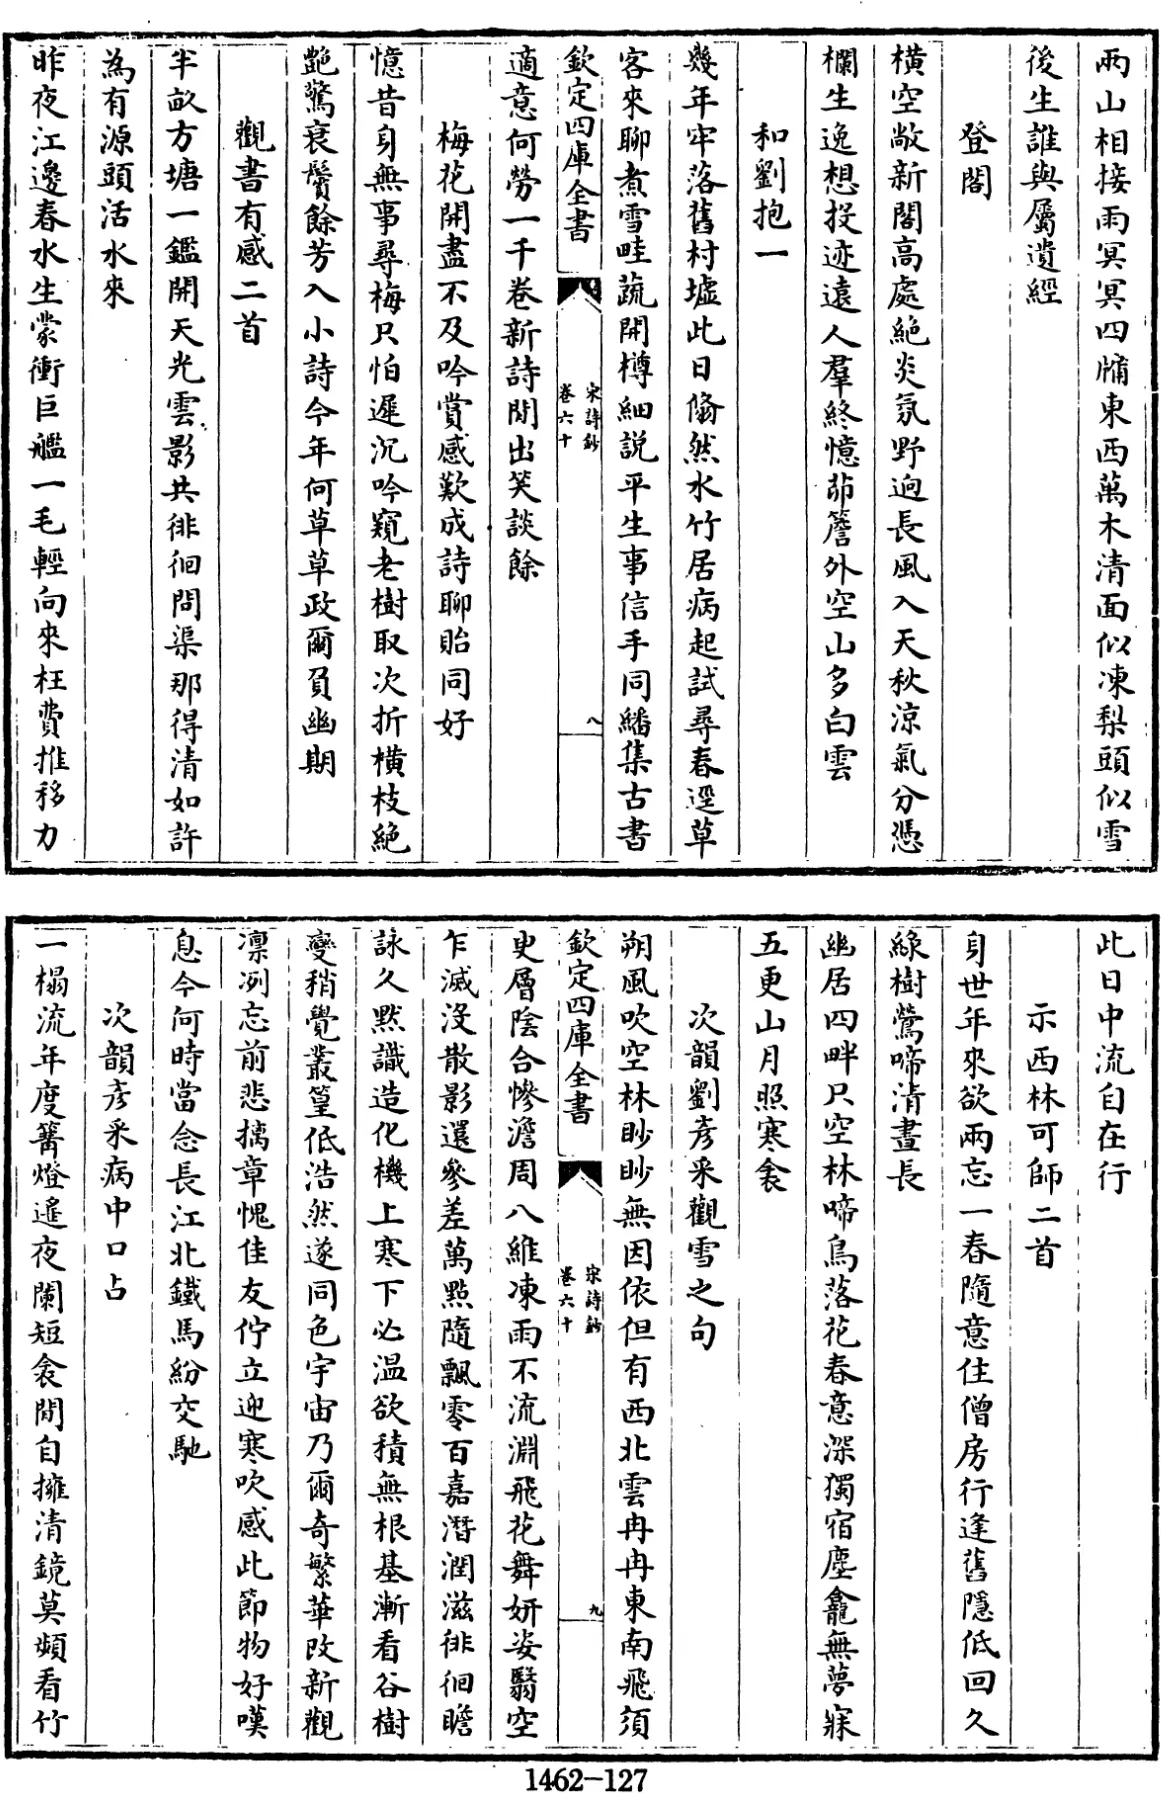 兩山相接雨冥冥四牖東西萬木清面似凍梨頭似雪
後生誰與屬遺經
登閣
橫空敞新閣高處絶炎氛野逈長風入天秋涼氣分憑
欄生逸想投迹遠人羣終憶茆簷外空山多白雲
和劉抱一
幾年牢落舊村墟此日翛然水竹居病起試尋春逕草
客來聊煮雪畦蔬開樽細説平生事信手同繙集古書
欽定四庫全書
宋詩鈔
卷六十
八
適意何勞一千卷新詩閒出笑談餘
梅花開盡不及吟賞感歎成詩聊貽同好
憶昔身無事尋梅只怕遲沉吟窺老樹取次折橫枝絶
艶驚衰鬢餘芳入小詩今年何草草政爾負幽期
觀書有感二首
半畝方塘一鑑開天光雲影共徘徊問渠那得清如許
為有源頭活水來
昨夜江邊春水生蒙衝巨艦一毛輕向來枉費推移力
此日中流自在行
示西林可師二首
身世年來欲兩忘一春隨意住僧房行逢舊隱低回久
綠樹鶯啼清晝長
幽居四畔只空林啼鳥落花春意深獨宿塵龕無夢寐
五更山月照寒衾
次韻劉彥采觀雪之句
朔風吹空林眇眇無因依但有西北雲冉冉東南飛須
欽定四庫全書
宋詩鈔
卷六十
九
臾層陰合慘澹周八維凍雨不流淵飛花舞妍姿翳空
乍滅没散影還參差萬點隨飄零百嘉潛潤滋徘徊瞻
詠久默識造化機上寒下必温欲積無根基漸看谷樹
變稍覺叢篁低浩然遂同色宇宙乃爾奇繁華改新觀
凛冽忘前悲摛章愧佳友佇立迎寒吹感此節物好嘆
息今何時當念長江北鐵馬紛交馳
次韻彥采病中口占
一榻流年度篝燈遥夜闌短衾閒自擁清鏡莫頻看竹
1462-127